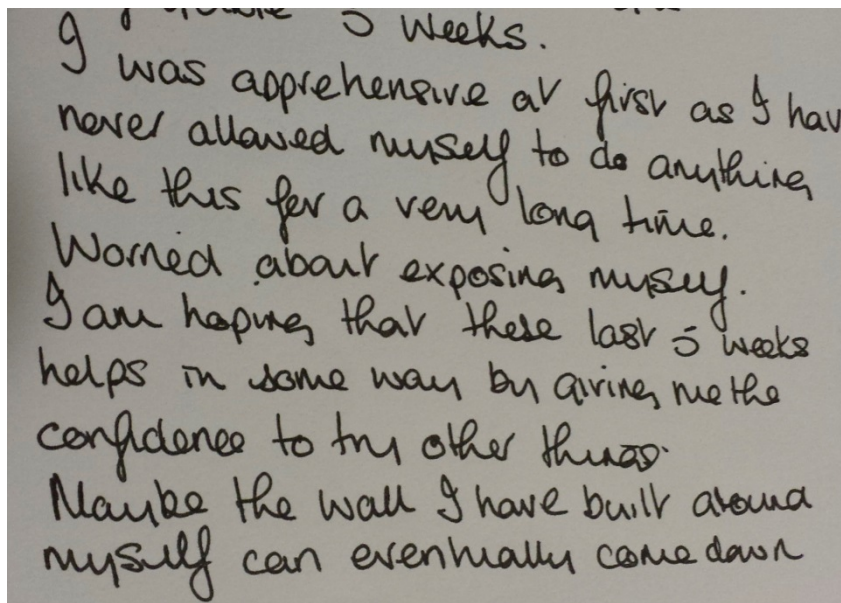 5 weeks.
I was apprehensive at first as I hav
never allowed myself to do anything
like this for a very long time.
Worried about exposing myself.
I am hoping that these last 5 weeks
helps in some way by giving me the
confidence to try other things.
Maybe the wall I have built around
myself can eventually come down